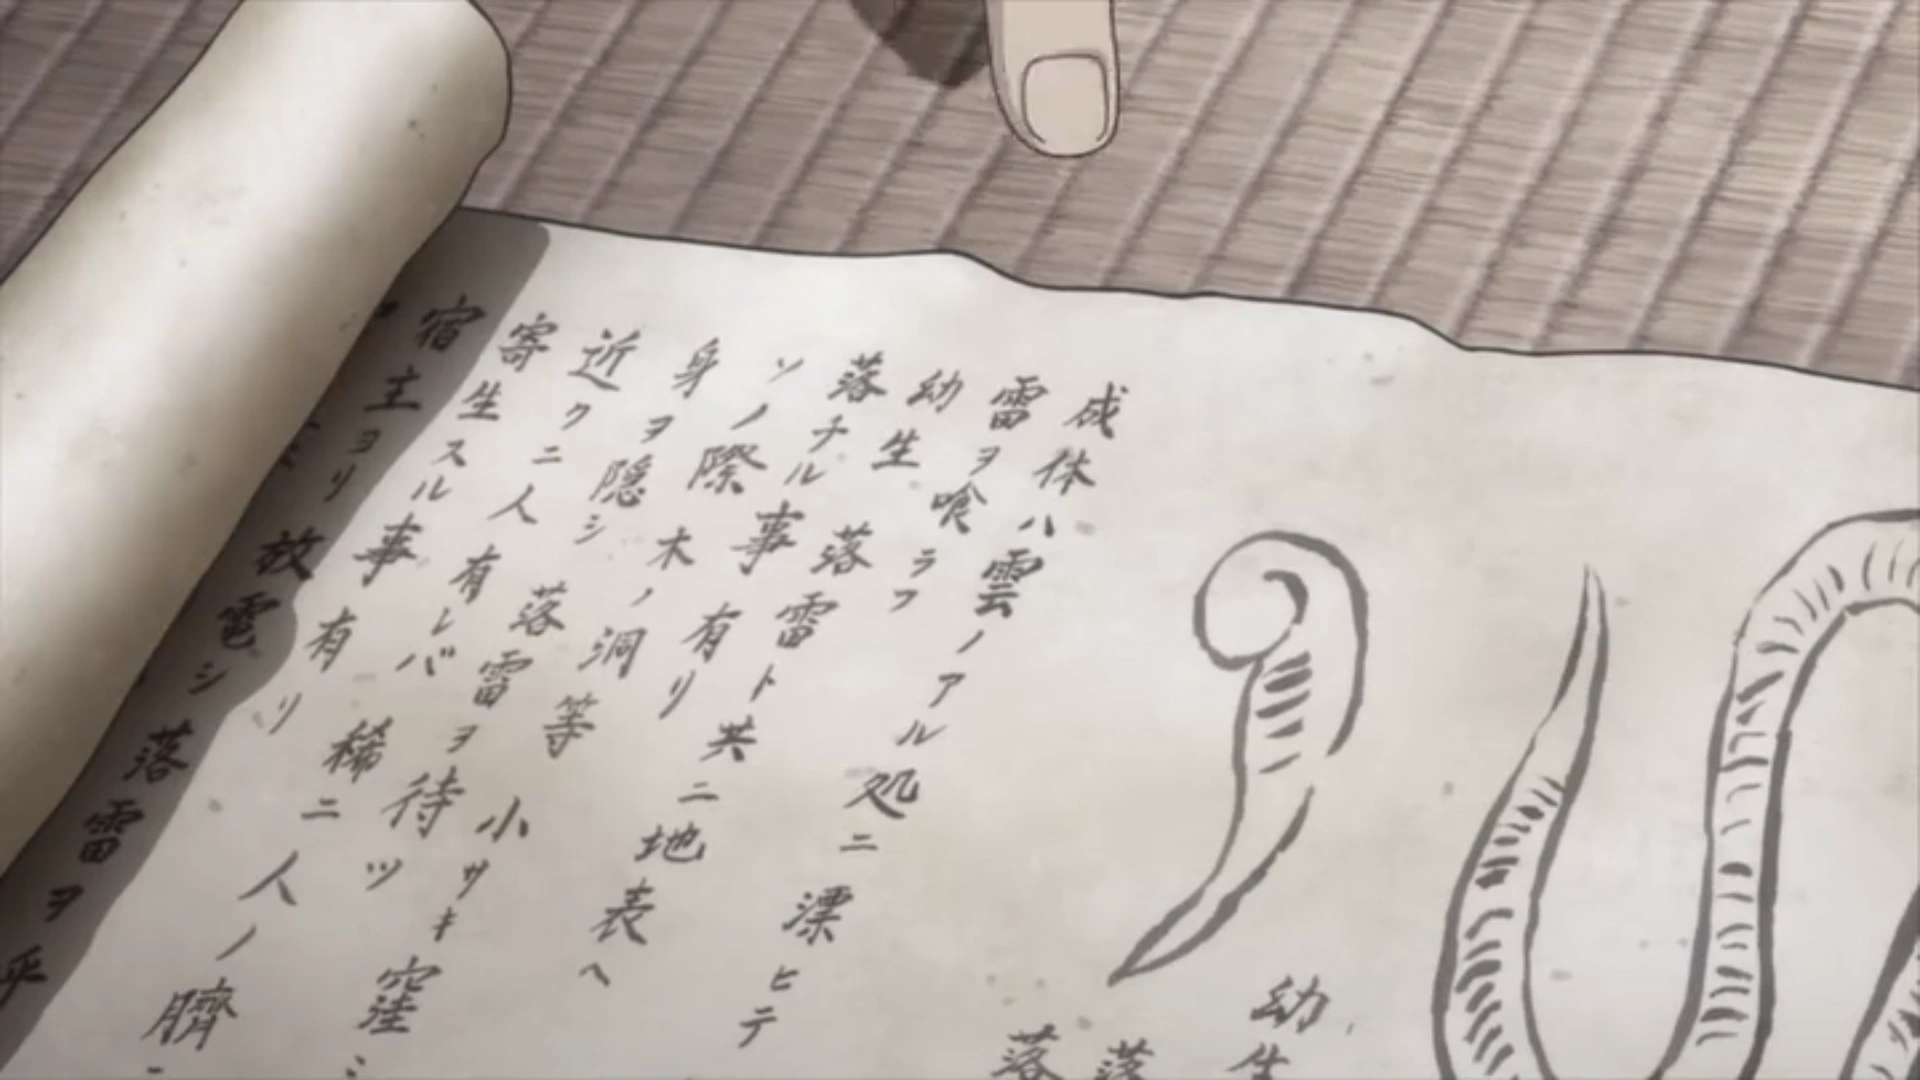 成体ハ雲ノアル処ニ漂ヒテ
雷ヲ喰ラフ
幼生 落雷ト共ニ地表ヘ
落チル事有リ
ソノ際 木ノ洞等 小サキ窪ミ
身ヲ隠シ 落雷ヲ待ツ
近クニ人有レバ 稀ニ人ノ臍ニ
寄生スル事有リ
宿主ヨリ放電シ落雷ヲ乎
幼生
落
落